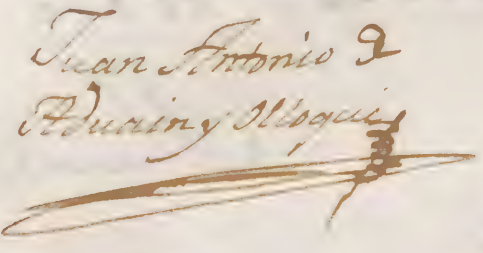 Juan Antonio d
Aduain y Olloqui